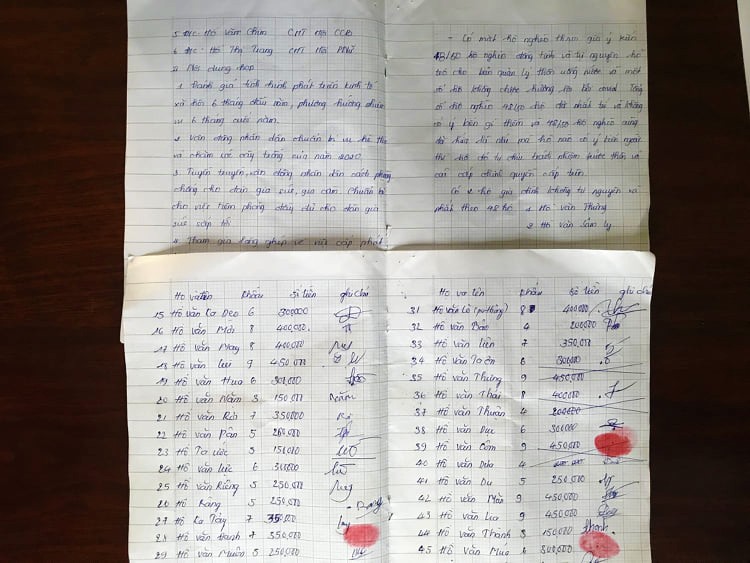 5 Đ/c. Hồ Văn Chin CHT Hội CCB
6 Đ/c. Hồ Thị Trang CHT Hội PNVN
II Nội dung họp
1 Đánh giá tình hình phát triển kinh tế
xã hội 6 tháng đầu năm, phương hướng nhiệm
vụ 6 tháng cuối năm.
2 Vận động nhân dân chuẩn bị
và chăm sóc cây trồng năm 2020
3 Tuyên truyền, vận động nhân dân cách phòng
chống cho đàn gia súc, gia cầm chuẩn bị
cho việc tiêm phòng đầy đủ cho đàn gia
súc sắp tới
4 Tham gia lồng ghép về cấp phát
- Có một hộ nghèo tham gia ý kiến
48/50 hộ nghèo đồng tình và tự nguyện hỗ
trợ cho ban quản lý thôn uống nước và một
số hộ không được hưởng hỗ trợ covid. Tổng
số hộ nghèo 48/50 hộ đã nhất trí và không
có ý kiến gì thêm và 48/50 hộ nghèo cũng
đã hứa nếu mai hộ nào có ý kiến ngoài
thì hộ đó tự chịu trách nhiệm trước thôn và
các cấp chính quyền cấp trên
Có 2 hộ gia đình không tự nguyện và
nhất theo 48 hộ 1 Hồ Văn Thưng
2 Hồ Văn
Họ và tên Khẩu Số tiền ghi chú
15 Hồ Văn La Deo 6 300000
16 Hồ Văn Mới 8 400.000.
17 Hồ Văn May 8 400.000
18 Hồ Văn 9 450.000
19 Hồ Văn Hua 6 300,000
20 Hồ Văn Năm 3 150.000 Năm
21 Hồ Văn 7 350000
22 Hồ Văn Pân 5 250,000
23 Hồ Ta ước 3 150,000
24 Hồ Văn lực 6 300000
25 Hồ Văn Riêng 5 250,000
26 Hồ Băng 5 250,000
27 Hồ La Tây 7 350000
28 Hồ Văn Hạnh 7 350,000
29 Hồ Văn Muôn 5 250,000
Họ và tên Khẩu Số tiền ghi chú
31 Hồ Văn Lô 8 400,000
32 Hồ Văn Bân 4 200,000
33 Hồ Văn liên 7 350,000
34 Hồ Văn 6 300000
35 Hồ Văn Thưng 9 450,000
36 Hồ Văn Thái 8 400.000
37 Hồ Văn Thuận 4 200000
38 Hồ Văn Dục 6 300000
39 Hồ Văn Côn 9 450,000
40 Hồ Văn Dừa 4
41 Hồ Văn Du 5 250,000
42 Hồ Văn Mằn 9 450,000
43 Hồ Văn Lia 9 450,000
44 Hồ Văn Thành 3 150,000 Thành
45 Hồ Văn Múa 6 300,000